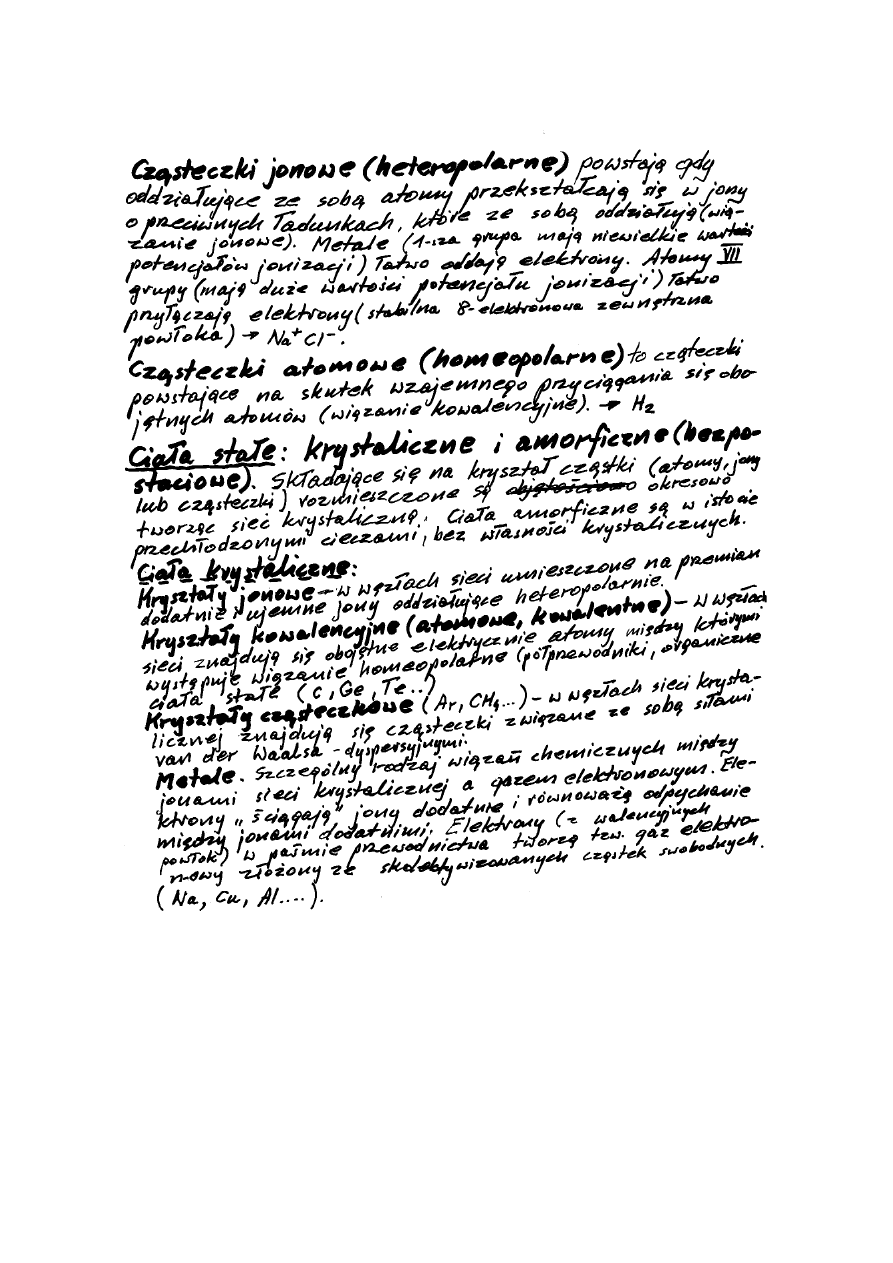 Cząsteczki jonowe (heteropolarne) powstają gdy
oddziałujące ze sobą atomy przekształcają się w jony
o przeciwnych ładunkach, które ze sobą oddziałują (wią-
zanie jonowe). Metale (1-sza grupa mają niewielkie wartości
potencjałów jonizacji) łatwo oddają elektrony. Atomy VII
grupy (mają duże wartości potencjału jonizacji) łatwo
przyłączają elektrony (stabilna 8-elektronowa zewnętrzna
powłoka) → Na⁺Cl⁻.
Cząsteczki atomowe (homeopolarne) to cząteczki
powstające na skutek wzajemnego przyciągania się obo-
jętnych atomów (wiązanie kowalencyjne). → H₂
Ciała stałe: krystaliczne i amorficzne (bezpo-
staciowe). Składające się na kryształ cząstki (atomy, jony
lub cząsteczki) rozmieszczone są okresowo
tworząc sieć krystaliczną. Ciała amorficzne są w istocie
przechłodzonymi cieczami, bez własności krystalicznych.
Ciała krystaliczne:
Kryształy jonowe – w węzłach sieci umieszczone na przemian
dodatnie i ujemne jony oddziałujące heteropolarnie.
Kryształy kowalencyjne (atomowe, kowalentne) – w węzłach
sieci znajdują się obojętne elektrycznie atomy między którymi
występuje wiązanie homeopolarne (półprzewodniki, organiczne
ciała stałe (C, Ge, Te..)
Kryształy cząsteczkowe (Ar, CH₄...) – w węzłach sieci krysta-
licznej znajdują się cząsteczki związane ze sobą siłami
van der Waalsa - dyspersyjnymi.
Metale. Szczególny rodzaj wiązań chemicznych między
jonami sieci krystalicznej a gazem elektronowym. Ele-
ktrony „ściągają" jony dodatnie i równoważą odpychanie
między jonami dodatnimi. Elektrony (z walencyjnych
powłok) w paśmie przewodnictwa tworzą tzw. gaz elektro-
nowy złożony ze skolektywizowanych cząstek swobodnych.
(Na, Cu, Al....).